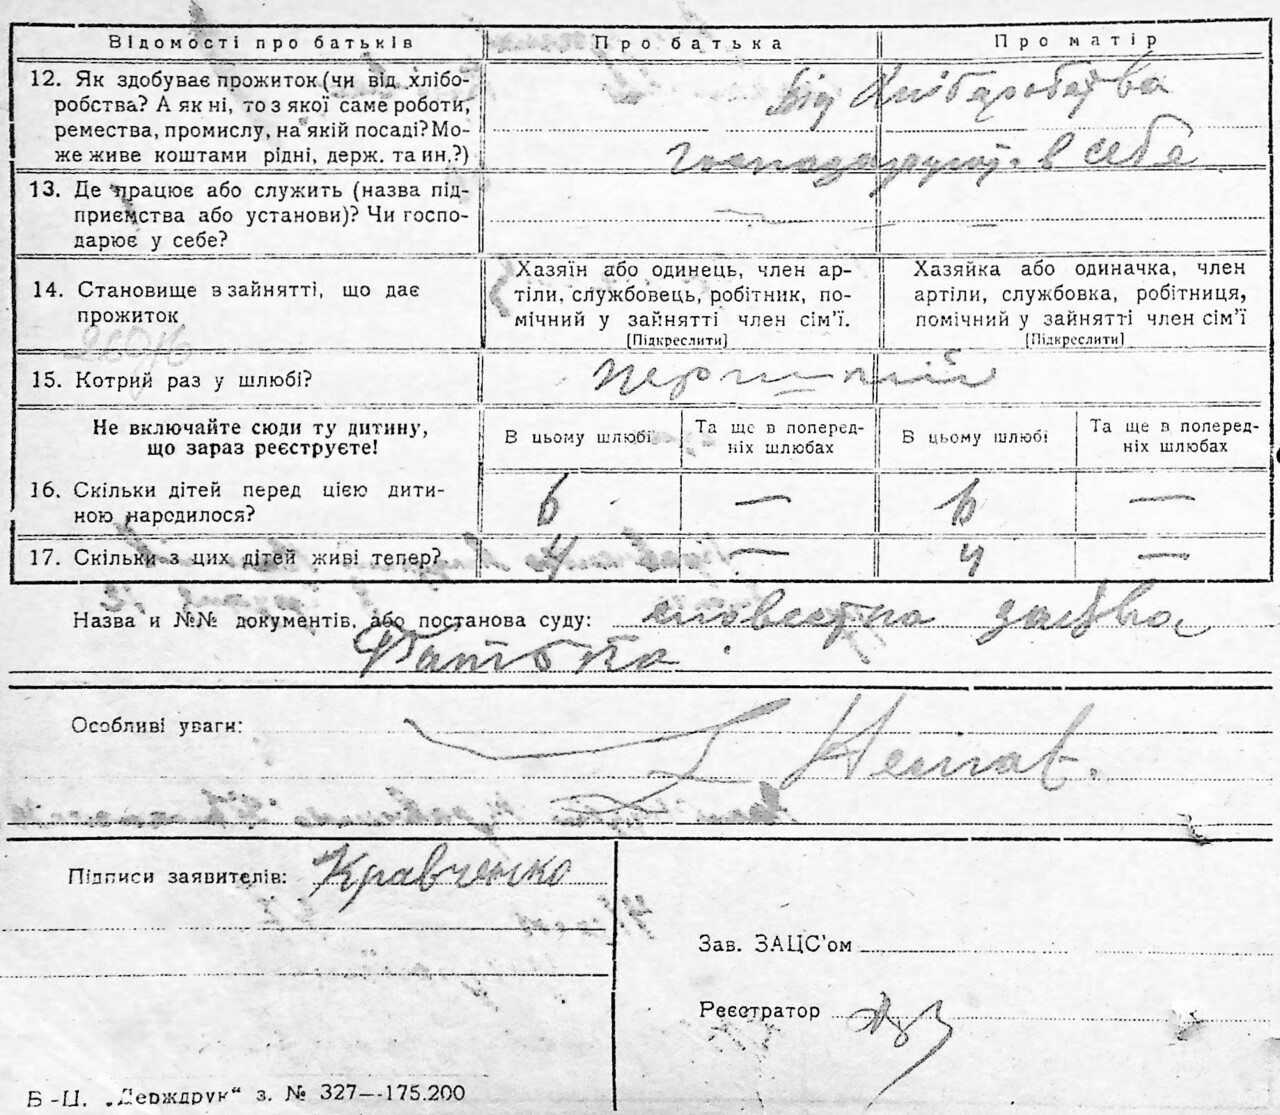 Відомості про батьків Про батька Про матір
12. Як здобуває прожиток (чи від хлібо-
робства? А як ні, то з якої саме роботи,
ремества, промислу, на якій посаді? Мо-
же живе коштами рідні, держ. та ин.?)
Від хліборобства
в себе
13. Де працює або служить (назва під-
приємства або установи)? Чи госпо-
дарює у себе?
14. Становище в зайнятті, що дає
прожиток
Хазяїн або одинець, член ар-
тіли, службовець, робітник, по-
мічний у зайнятті член сім’ї.
[Підкреслити]
Хазяйка або одиначка, член
артіли, службовка, робітниця,
помічний у зайнятті член сім’ї
[Підкреслити]
15. Котрий раз у шлюбі?
Не включайте сюди ту дитину,
що зараз реєструєте!
В цьому шлюбі
Та ще в поперед-
ніх шлюбах
В цьому шлюбі
Та ще в поперед-
ніх шлюбах
16. Скільки дітей перед цією дити-
ною народилося?
6 — 6 —
17. Скільки з цих дітей живі тепер? 4 — 4 —
Назва и №№ документів, або постанова суду: словесна заява
батька.
Особливі уваги:
Підписи заявителів: Кравченко
Зав. ЗАЦС'ом
Реєстратор
Б-Ц. „Держдрук“ з. № 327—175.200